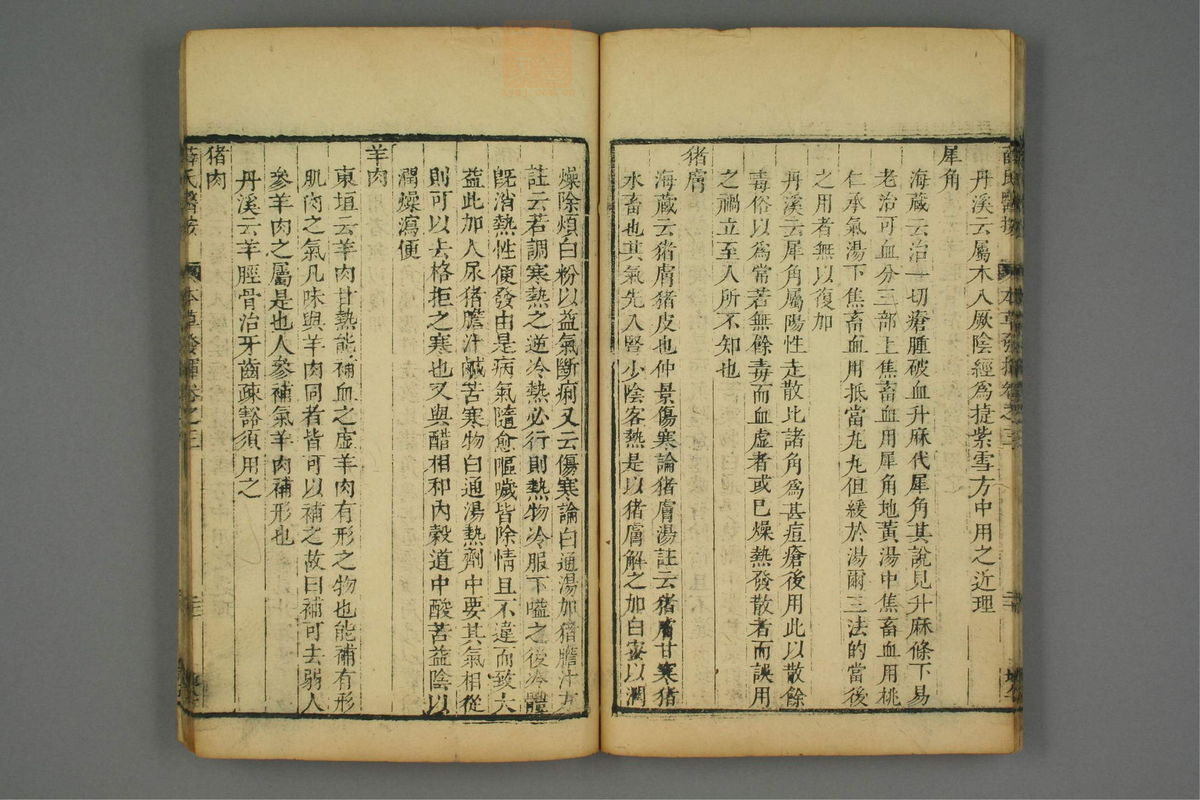 丹溪云屬木入厥陰經爲捷紫雪方中用之近理
犀角
海藏云治一切瘡腫破血升麻代犀角其說見升麻條下易
老治可血分三部上焦畜血用犀角地黃湯中焦畜血用桃
仁承氣湯下焦畜血用抵當丸丸但緩於湯爾三法的當後
之用者無以復加
丹溪云犀角屬陽性走散比諸角爲甚痘瘡後用此以散餘
毒俗以爲常若無餘毒而血虛者或巳燥熱發散者而誤用
之禍立至人所不知也
猪膚
海藏云猪膚猪皮也仲景傷寒論猪膚湯註云猪膚甘寒猪
水畜也其氣先入腎少陰客熱是以猪膚解之加白蜜以潤
燥除煩白粉以益氣斷痢又云傷寒論白通湯加猪膽汁方
註云若調寒熱之逆冷熱必行則熱物冷服下嗌之後冷體
旣消熱性便發由是病氣隨愈嘔噦皆除情且不違而致大
益此加人尿猪膽汁鹹苦寒物白通湯熱劑中要其氣相從
則可以去格拒之寒也又與醋相和內穀道中酸苦益陰以
潤燥瀉便
羊肉
東垣云羊肉甘熱能補血之虛羊肉有形之物也能補有形
肌肉之氣凡味與羊肉同者皆可以補之故曰補可去弱人
參羊肉之屬是也人參補氣羊肉補形也
丹溪云羊脛骨治牙齒疎豁須用之
猪肉
薛氏醫按 本草發揮卷之三